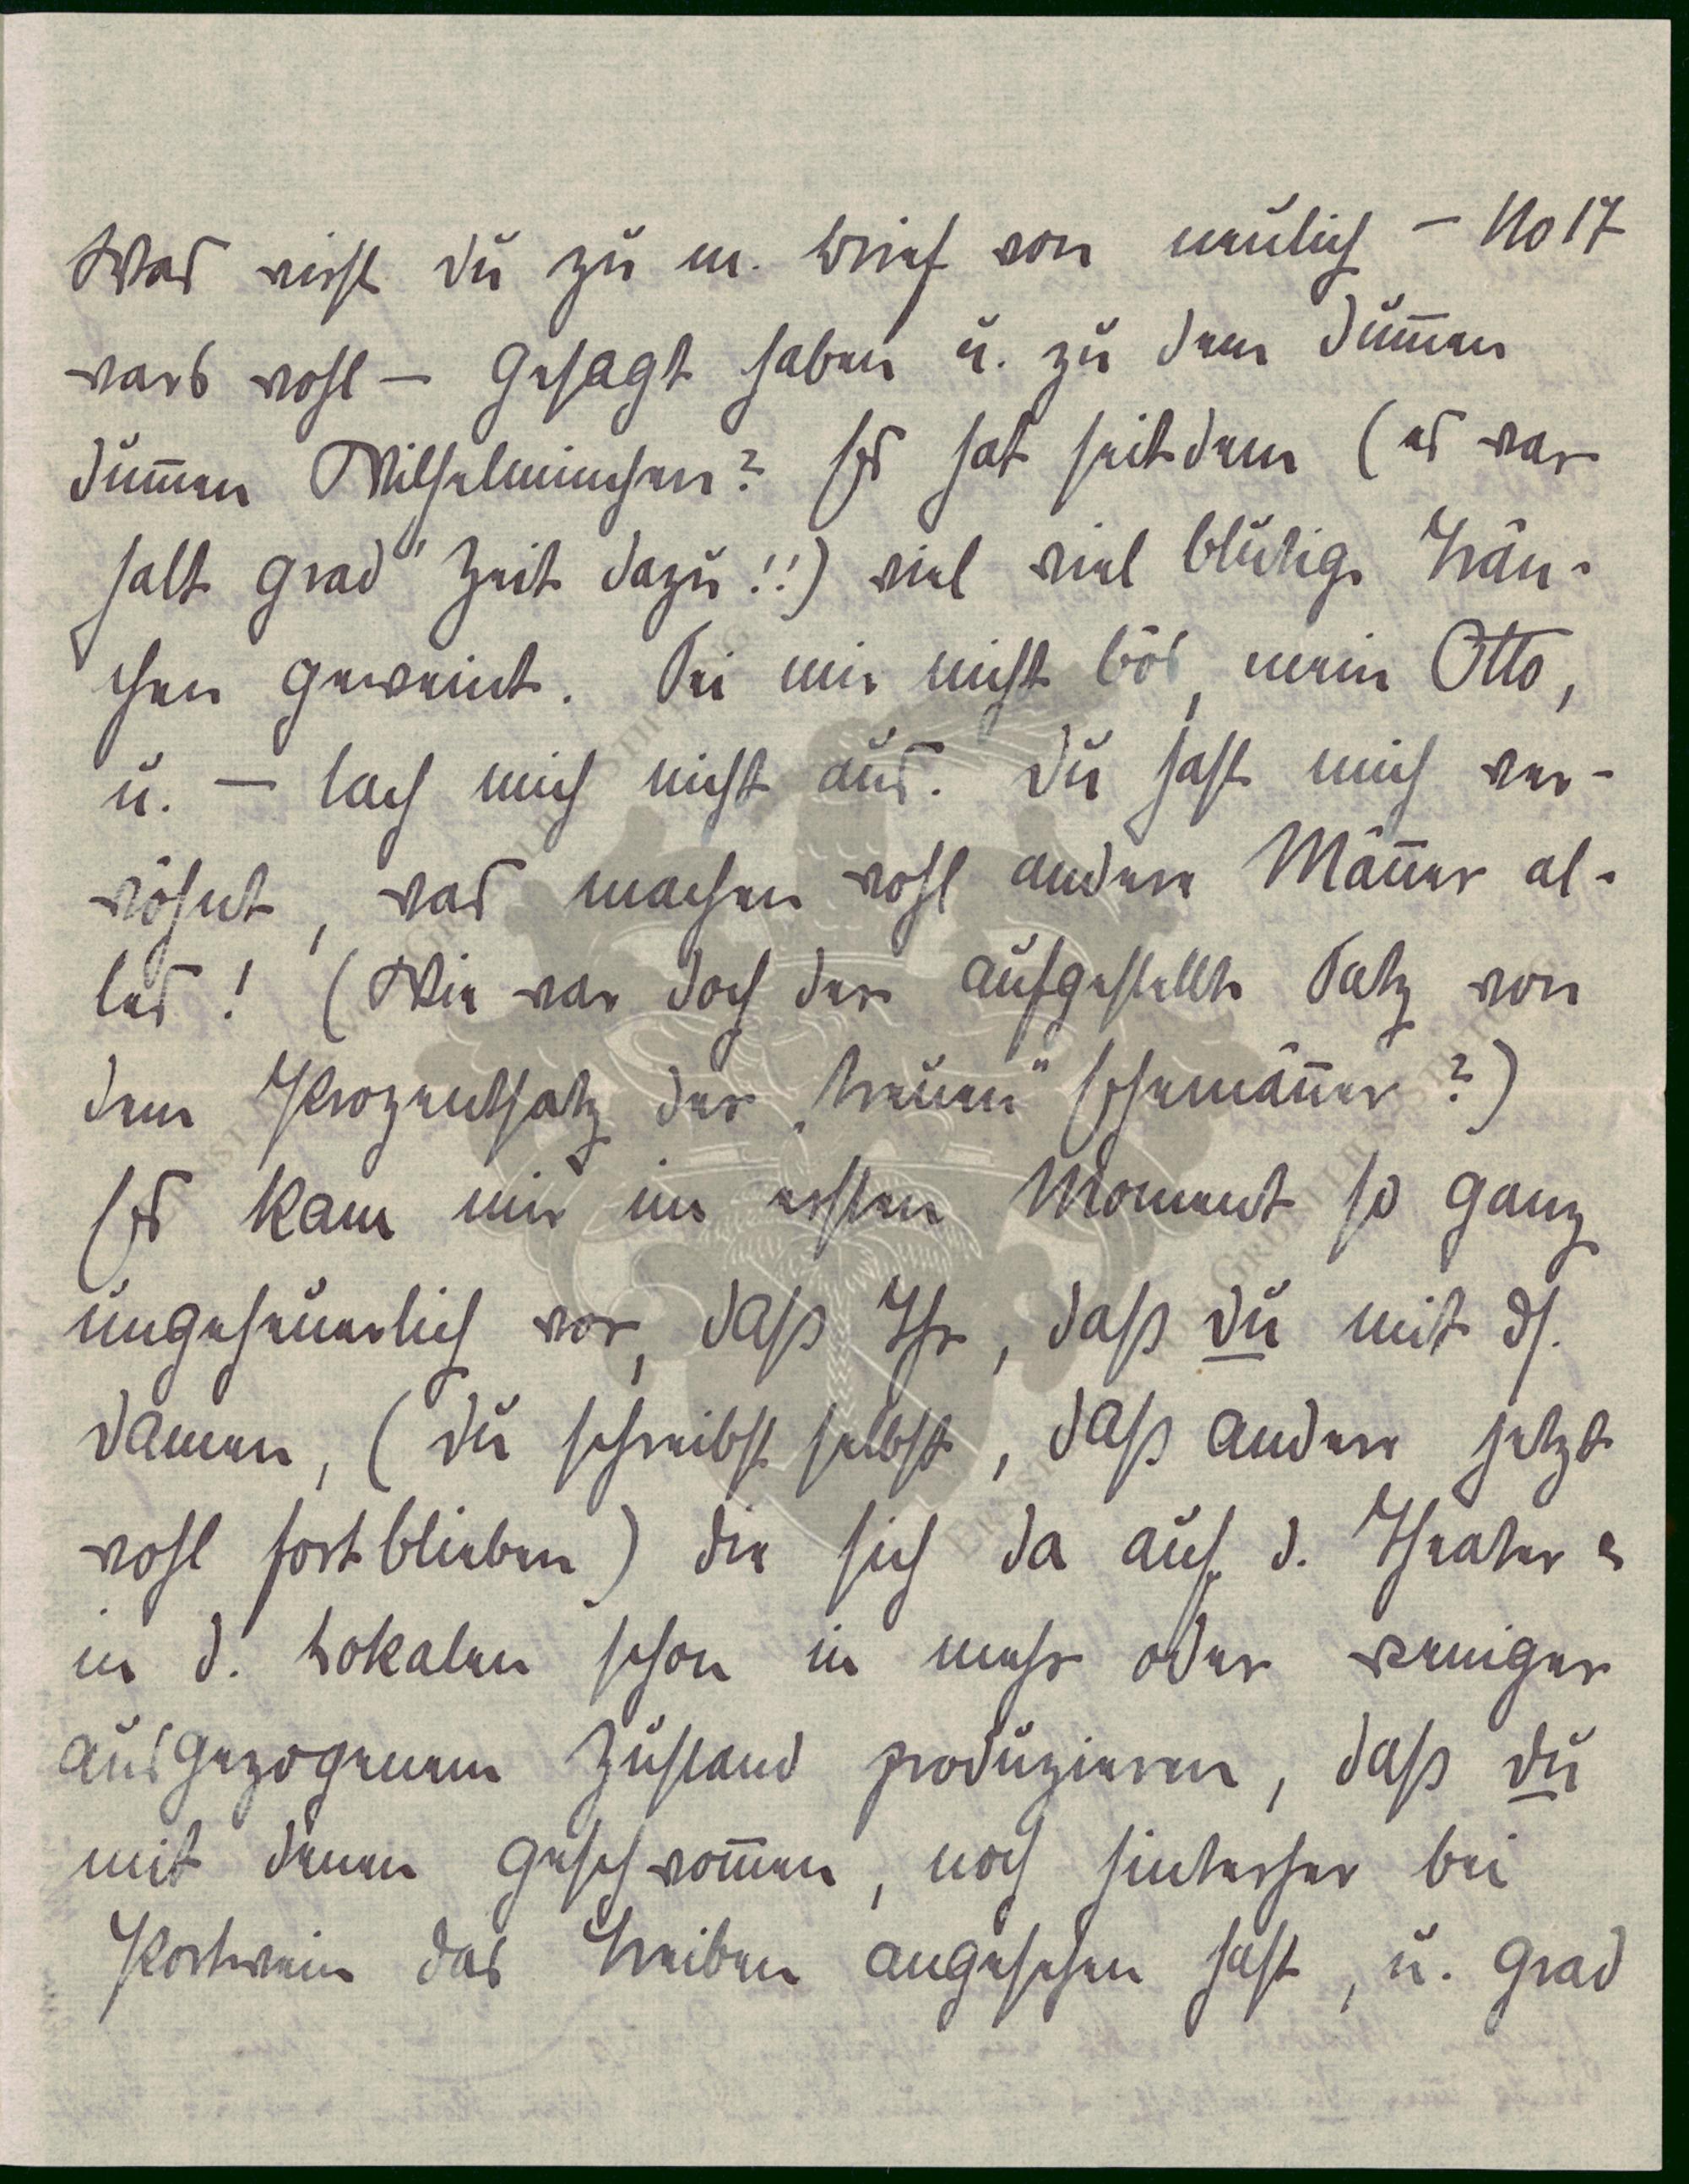 Was wirst Du zu m. Brief von neulich – No 17
wars wohl – gesagt haben u. zu dem dum̅en
dum̅en Wilhelminchen? Es hat seitdem (es war
halt grad' Zeit dazu!!) viel viel blutige Trän-
chen geweint. Sei mir nicht bös, mein Otto,
u. – lach mich nicht aus. Du hast mich ver-
wöhnt, was machen wohl andere Män̅er al-
les! (Wie war doch der aufgestellte Satz von
dem Prozentsatz der „treuen" Ehemän̅er?)
Es kam mir im ersten Moment so ganz
ungeheuerlich vor, daß Ihr, daß Du mit ds.
Damen, (Du schreibst selbst, daß andere jetzt
wohl fortblieben) die sich da auf d. Theater &
in d. Lokalen schon in mehr oder weniger
ausgezogenem Zustand produzieren, daß Du
mit denen geschwom̅en, noch hinterher bei
Portwein das Treiben angesehen hast, u. grad